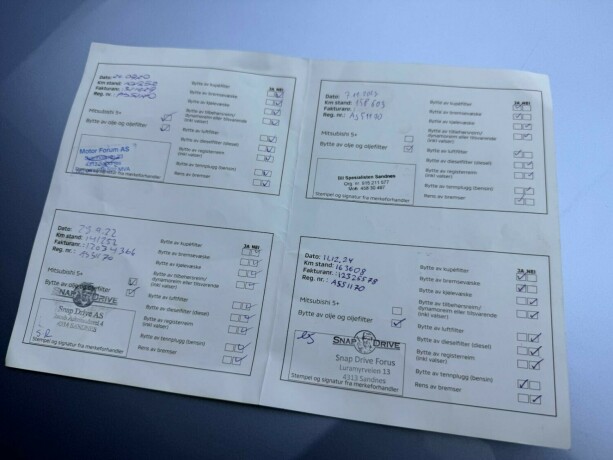 Dato:
Km stand:
Fakturanr:
Reg. nr.: AS51170
Mitsubishi 5+
Bytte av olje og oljefilter
Motor Forum AS
Stempel og signatur fra merkeforhandler
JA NEI
Bytte av kupefilter
Bytte av bremsevæske
Bytte av kjølevæske
Bytte av luftfilter
Bytte av dieselfilter (diesel)
Bytte av registerreim
(inkl valser)
Bytte av tennplugg (bensin)
Rens av bremser
Dato:
Km stand: 158603
Fakturanr.:
Reg. nr.: AS51170
Mitsubishi 5+
Bytte av olje og oljefilter
Bil Spesialisten Sandnes
Stempel og signatur fra merkeforhandler
JA NEI
Bytte av kupefilter
Bytte av bremsevæske
Bytte av kjølevæske
Bytte av tilbehørsreim/
dynamoreim eller tilsvarende
(inkl valser)
Bytte av luftfilter
Bytte av dieselfilter (diesel)
Bytte av registerreim
(inkl valser)
Bytte av tennplugg (bensin)
Rens av bremser
Dato: 29.9.22
Km stand: 141256
Fakturanr.:
Reg. nr.: AS51170
Mitsubishi 5+
Bytte av olje og oljefilter
SNAP DRIVE
Snap Drive AS
Stempel og signatur fra merkeforhandler
JA NEI
Bytte av kupefilter
Bytte av bremsevæske
Bytte av kjølevæske
Bytte av tilbehørsreim/
dynamoreim eller tilsvarende
(inkl valser)
Bytte av luftfilter
Bytte av dieselfilter (diesel)
Bytte av registerreim
(inkl valser)
Bytte av tennplugg (bensin)
Rens av bremser
Dato: 11.12.24
Km stand: 163608
Fakturanr.: 12326578
Reg. nr.: AS51170
Mitsubishi 5+
Bytte av olje og oljefilter
SNAP DRIVE
Snap Drive Forus
Luramyrveien 13
4313 Sandnes
Stempel og signatur fra merkeforhandler
JA NEI
Bytte av kupefilter
Bytte av bremsevæske
Bytte av kjølevæske
Bytte av tilbehørsreim/
dynamoreim eller tilsvarende
(inkl valser)
Bytte av luftfilter
Bytte av dieselfilter (diesel)
Bytte av registerreim
(inkl valser)
Bytte av tennplugg (bensin)
Rens av bremser